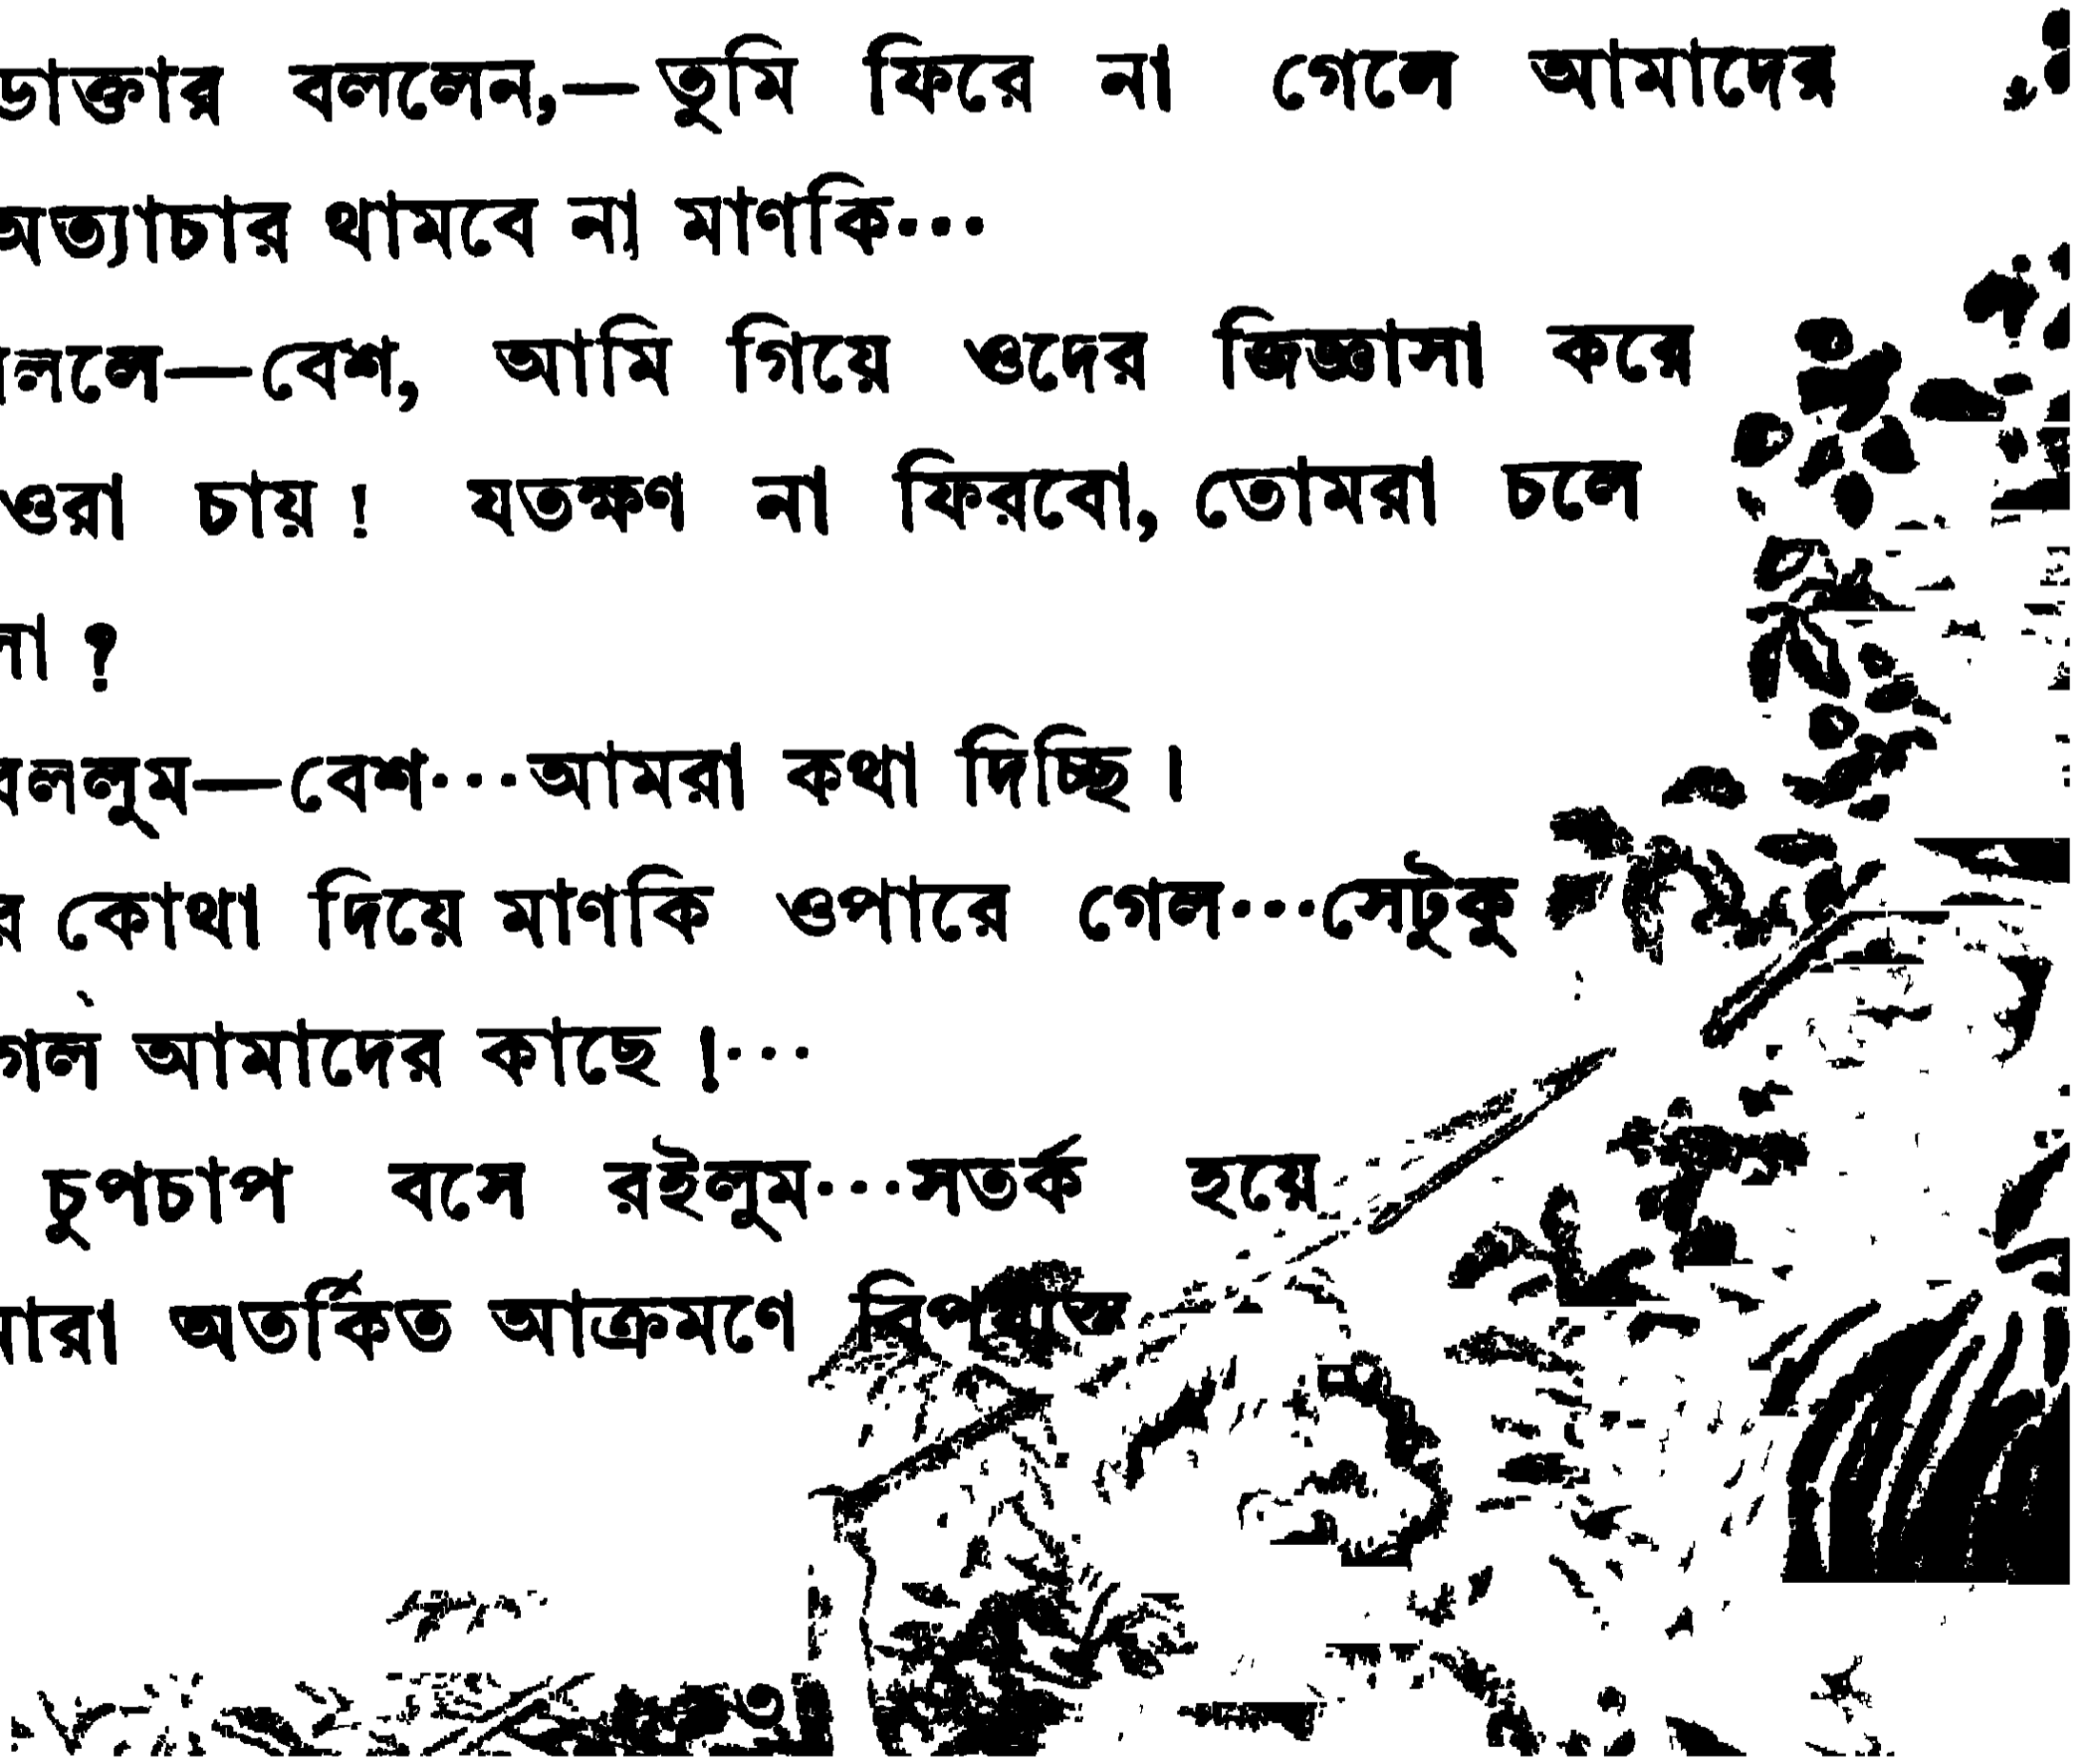 ডাক্তার বললেন,—তুমি ফিরে না গেলে আমাদের
অত্যাচার থামবে না মাণকি...
বললে—বেশ, আমি গিয়ে ওদের জিজ্ঞাসা করে
ওরা চায়! যতক্ষণ না ফিরবো, তোমরা চলে
না?
বললুম—বেশ...আমরা কথা দিচ্ছি।
র কোথা দিয়ে মাণকি ওপারে গেল...সেটুকু
গেল আমাদের কাছে!...
চুপচাপ বসে রইলুম...সতর্ক হয়ে
অতর্কিত আক্রমণে বিপর্য্যস্ত